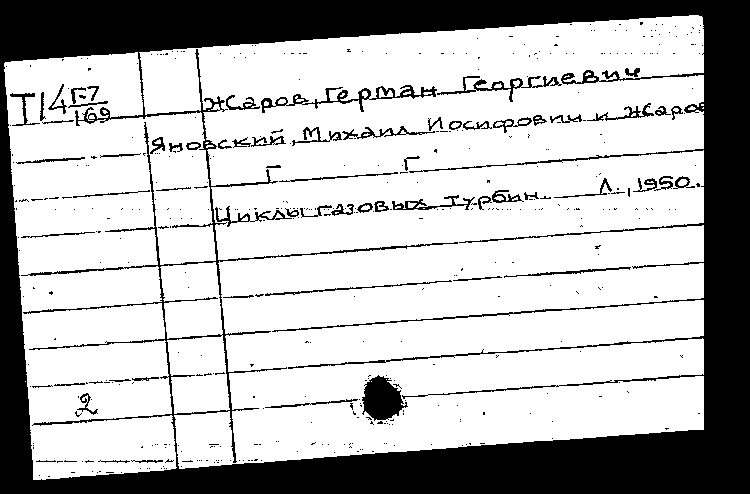 Т14 Г-7
169
Жаров, Герман Георгиевич
Яновский, Михаил Иосифович и Жаров
Г Г
Циклы газовых турбин. Л., 1950.
2